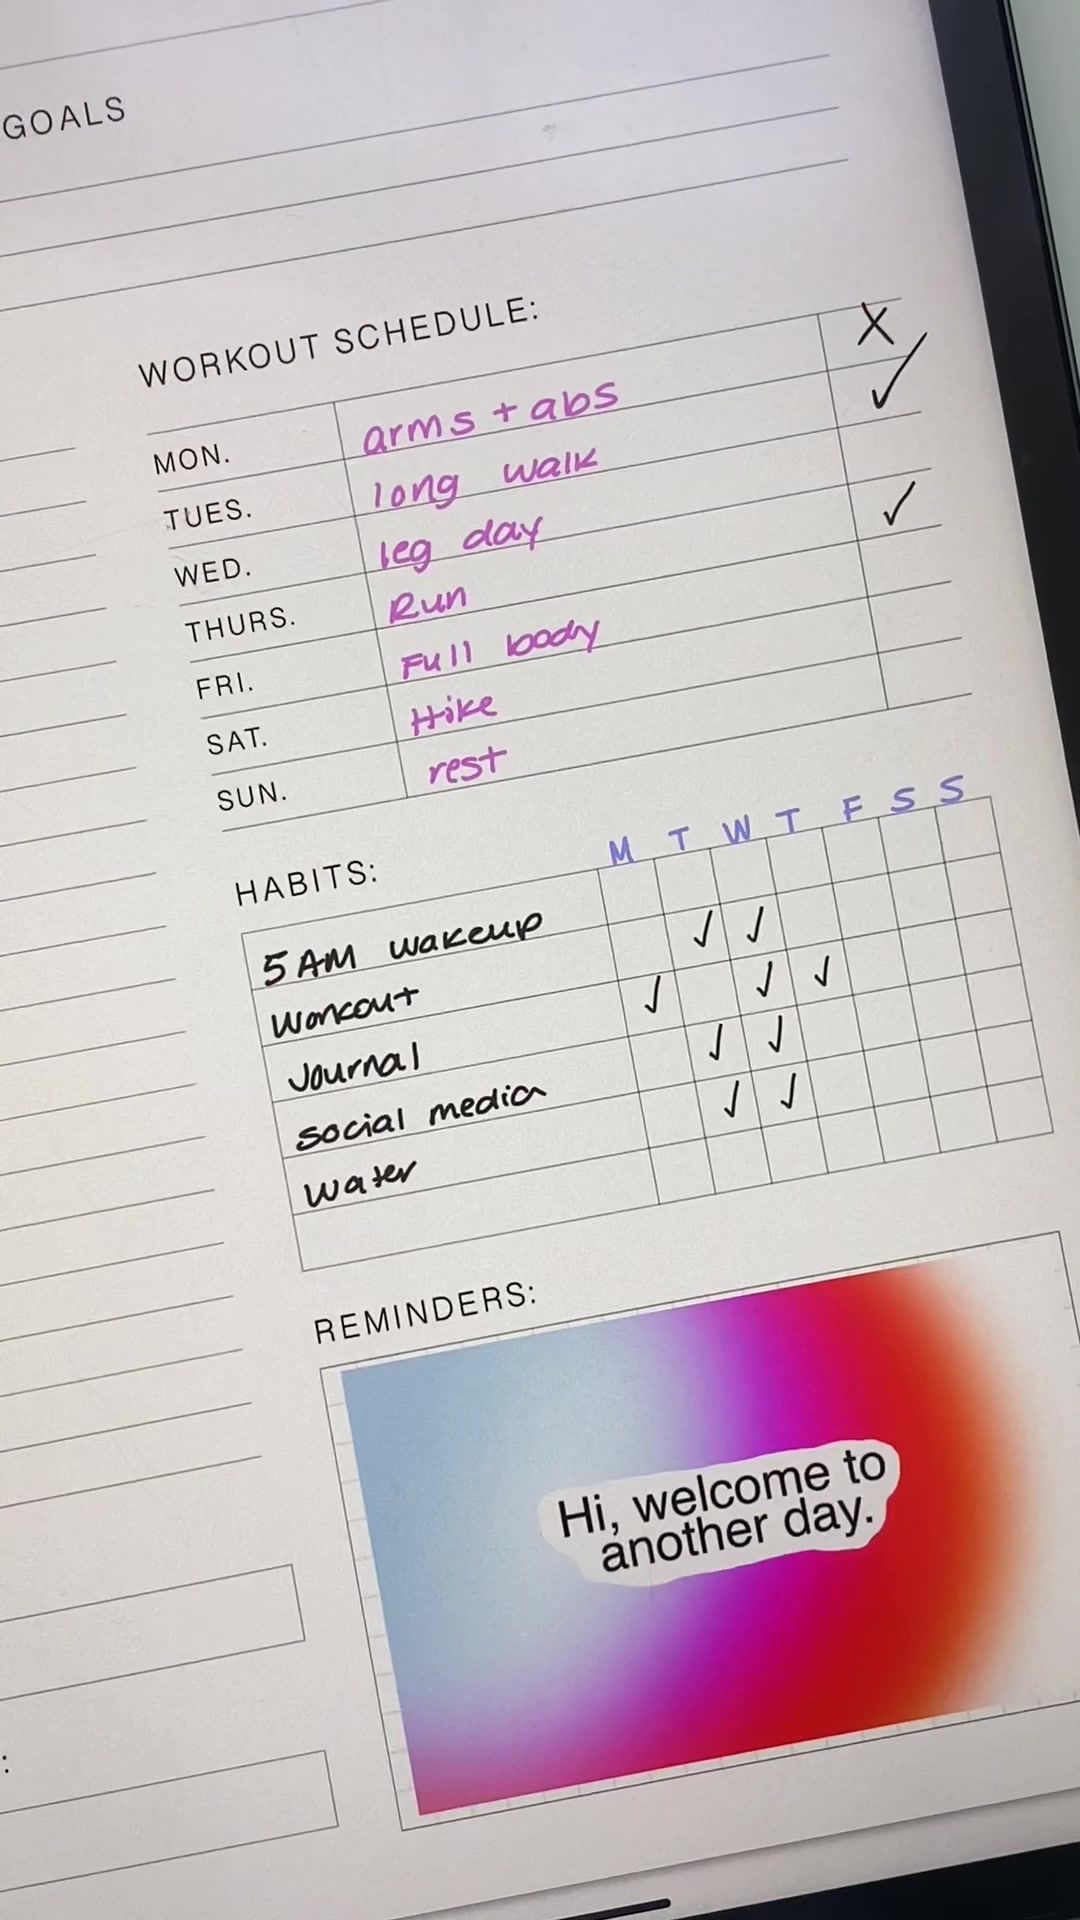 GOALS
WORKOUT SCHEDULE:
X
MON. arms + abs
✓
TUES. long walk
WED. leg day
✓
THURS. Run
FRI. Full body
SAT. Hike
SUN. rest
HABITS: M T W T F S S
5 AM wakeup
✓ ✓
Workout
✓ ✓ ✓
Journal
✓ ✓
social media
✓ ✓
Water
REMINDERS:
Hi, welcome to
another day.
: